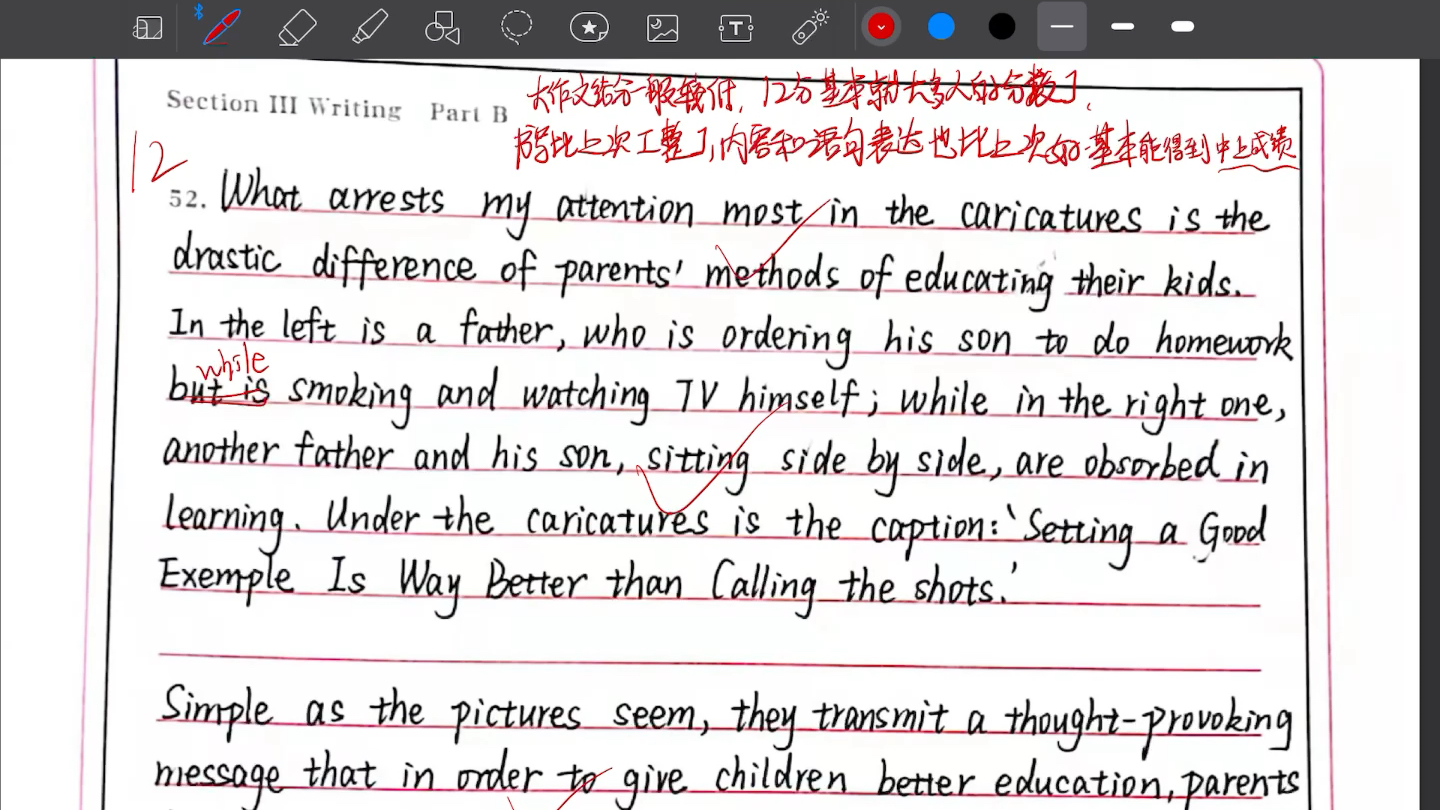 Section III Writing Part B
大作文给分一般较低, 12分基本就大多人的分数了,
比上次工整了,内容和语句表达也比上次好.基本能得到中上成绩
12
52. What arrests my attention most in the caricatures is the
drastic difference of parents' methods of educating their kids.
In the left is a father, who is ordering his son to do homework
while
but is smoking and watching TV himself; while in the right one,
another father and his son, sitting side by side, are obsorbed in
learning. Under the caricatures is the caption: 'Setting a Good
Exemple Is Way Better than Calling the shots.'
Simple as the pictures seem, they transmit a thought-provoking
message that in order to give children better education, parents